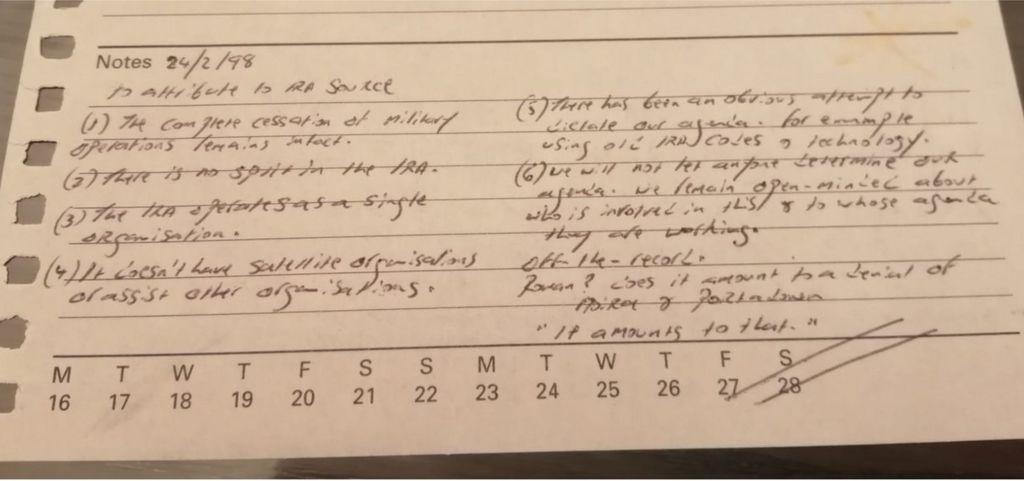 Notes 24/2/98
to attribute to IRA Source
(1) The complete cessation of military
operations remains intact.
(2) There is no split in the IRA.
(3) The IRA operates as a single
organisation.
(4) It doesn't have satellite organisations
or assist other organisations.
(5) There has been an obvious attempt to
dictate our agenda. For example
using old (IRA) codes & technology.
(6) We will not let anyone determine our
agenda. We remain open-minded about
who is involved in this & to whose agenda
they are working.
Off-the-record.
? Does it amount to a denial of
Moira & Portadown
"It amounts to that."
M T W T F S S M T W T F S
16 17 18 19 20 21 22 23 24 25 26 27 28